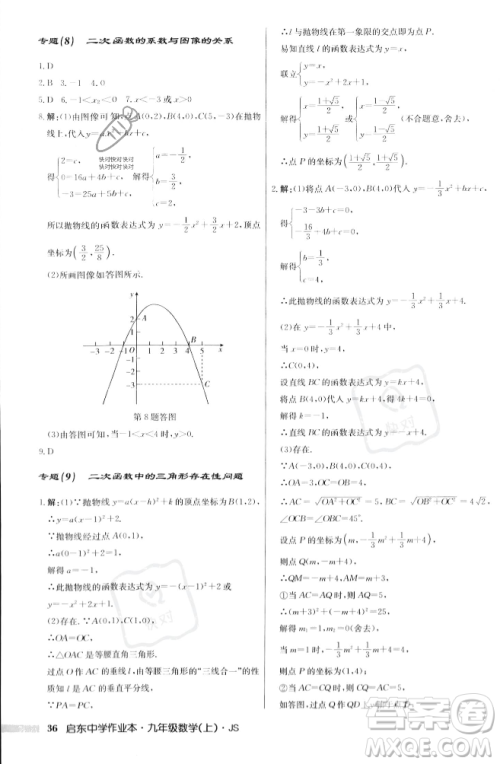 专题(8) 二次函数的系数与图像的关系
1. D
2. B 3. -1 4. 0
5. D 6. -1<x₂<0 7. x<-3或x>5
8. 解:(1)由图像可知,点(0,2),(4,0),(5,-3)在抛物
线上,代入函数表达式y=ax²+bx+c,
得{2=c, 0=16a+4b+c, -3=25a+5b+c, 解得{a=-1/2, b=3/2, c=2.
所以抛物线的函数表达式为y=-1/2x²+3/2x+2,顶点
坐标为(3/2, 25/8).
(2)所画图像如答图所示.
y
A
2
1
-3 -2 -1 O 1 2 3 4 5 x
B
-1
-2
-3
C
第8题答图
(3)由图像可知,当y>0时,-1<x<4.
9. D
专题(9) 二次函数中的三角形存在性问题
1. 解:(1)∵抛物线y=a(x-h)²+k的顶点坐标为B(1,2),
∴y=a(x-1)²+2.
∵抛物线经过点A(0,1),
∴a(0-1)²+2=1.
解得a=-1.
∴此抛物线的函数表达式为y=-(x-1)²+2.
(2)存在.∵A(0,1),C(1,0),
∴OA=OC.
∴△OAC是等腰三角形.
过点O作AC的垂线l,根据等腰三角形的“三线合一”的
性质知l是AC的垂直平分线.
∴l与抛物线在第一象限的交点即为点P.
易知直线l的函数表达式为y=x.
联立{y=x, y=-(x-1)²+2.
解得{x=(1+√5)/2, y=(1+√5)/2 或{x=(1-√5)/2, y=(1-√5)/2 (不合题意,舍去).
∴点P的坐标为((1+√5)/2, (1+√5)/2).
2. 解:(1)将点A(-3,0),B(4,0)代入y=-1/3x²+bx+c,
得{-3-3b+c=0, -16/3+4b+c=0.
解得{b=1/3, c=4.
∴此抛物线的函数表达式为y=-1/3x²+1/3x+4.
(2)在y=-1/3x²+1/3x+4中,
当x=0时,y=4,
∴C(0,4).
设直线BC的函数表达式为y=kx+4.
将点B(4,0)代入y=kx+4,得4k+4=0.
解得k=-1.
∴直线BC的函数表达式为y=-x+4.
(3)存在.
∵A(-3,0),B(4,0),C(0,4),
∴OA=3,OC=OB=4.
∴AC=√(OA²+OC²)=5,BC=√(OB²+OC²)=4√2,
∠OBC=∠OCB=45°.
设点P的坐标为(m,-1/3m²+1/3m+4)(0<m<4),
则点Q(m,-m+4).
∴AM=m+3,QM=-m+4.
①当AC=AQ时,AC=AQ=5,
∴(m+3)²+(-m+4)²=25.
解得m=1或m=0(舍去).
②当AC=CQ时,CQ=AC=5.
如答图,过点Q作QE⊥y轴于点E,
36 启东中学作业本·九年级数学(上)·JS
快对快对快对
快对快对快对
快对
答案圈
MXQE.COM